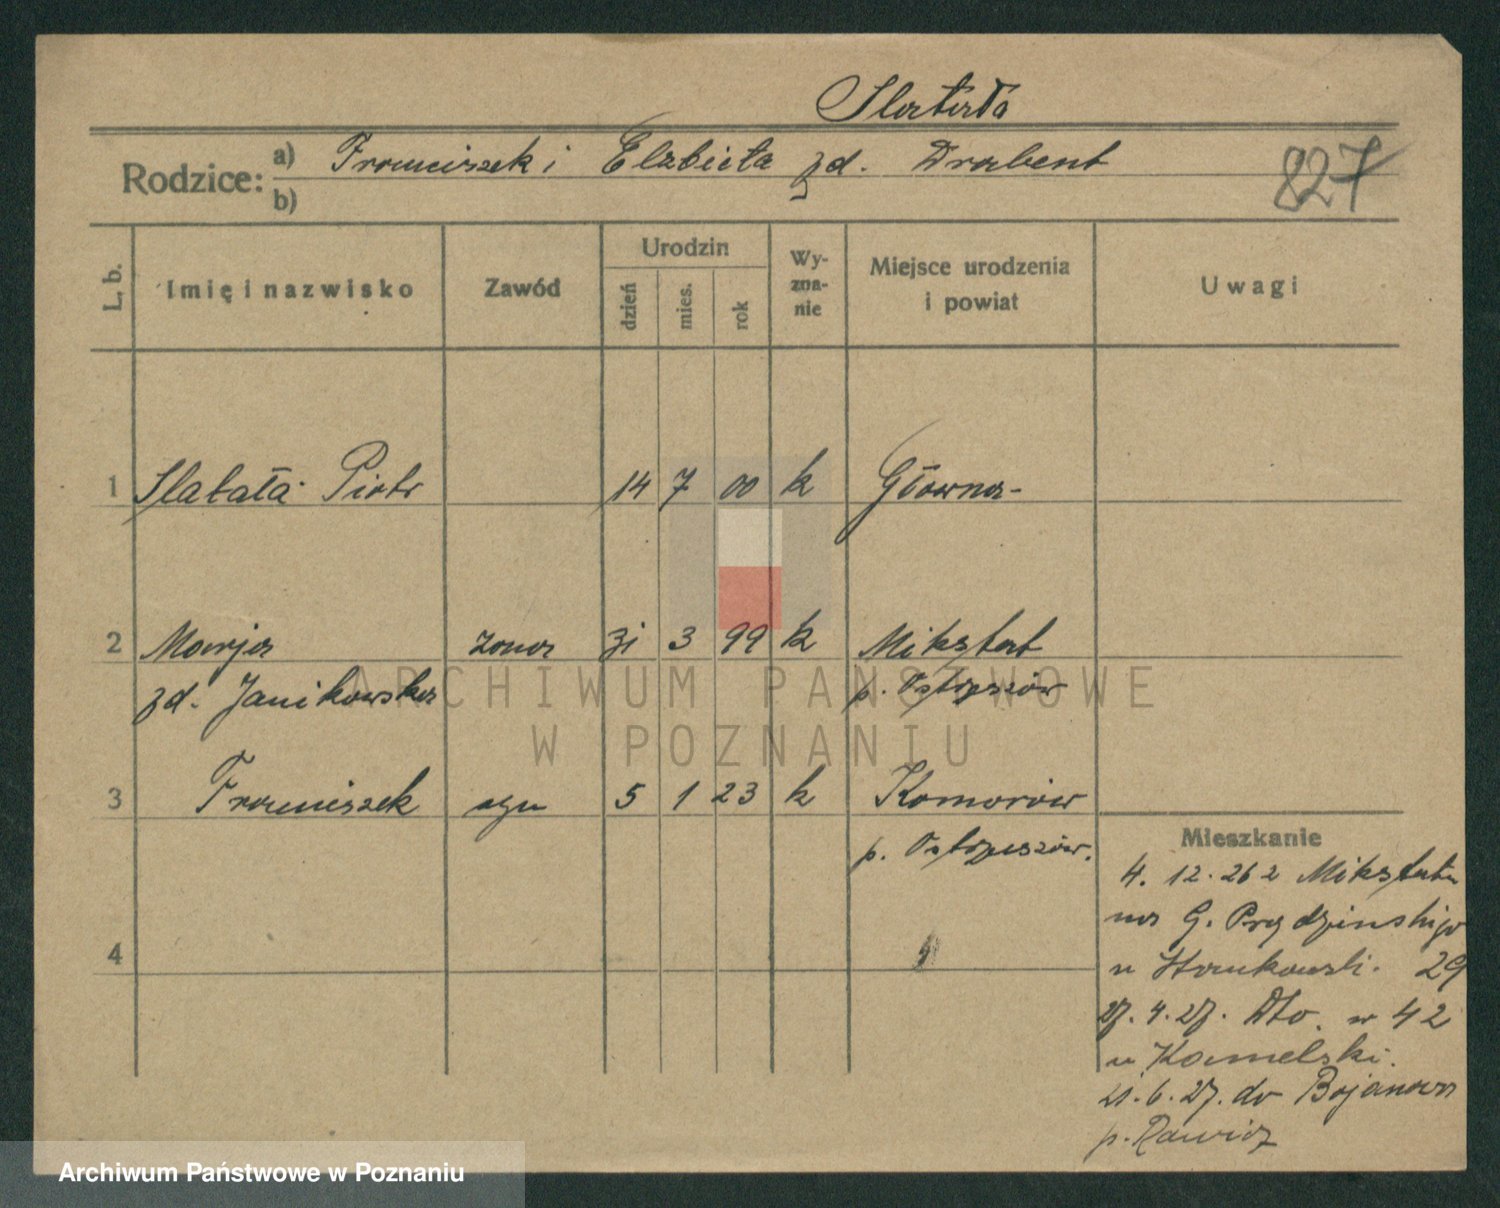 Słabała
Rodzice: a) Franciszek i Elżbieta zd. Drabent
b)
827
L. b. Imię i nazwisko Zawód Urodzin dzień mies. rok Wyznanie Miejsce urodzenia i powiat Uwagi
1 Słabała Piotr 14 7 00 k Główna
2 Marja żona 31 3 99 k Mikstat
zd. Janikowska p. Ostrzeszów
ARCHIWUM PAŃSTWOWE
W POZNANIU
3 Franciszek syn 5 1 23 k Komorów
p. Ostrzeszów.
Mieszkanie
4. 12. 26 z Mikstatu
na G. Prądzińskiego
4
u 29
27. 4. 27. dto. w 42
u Kamelski.
21. 6. 27. do Bojanowa
p. Rawicz
Archiwum Państwowe w Poznaniu